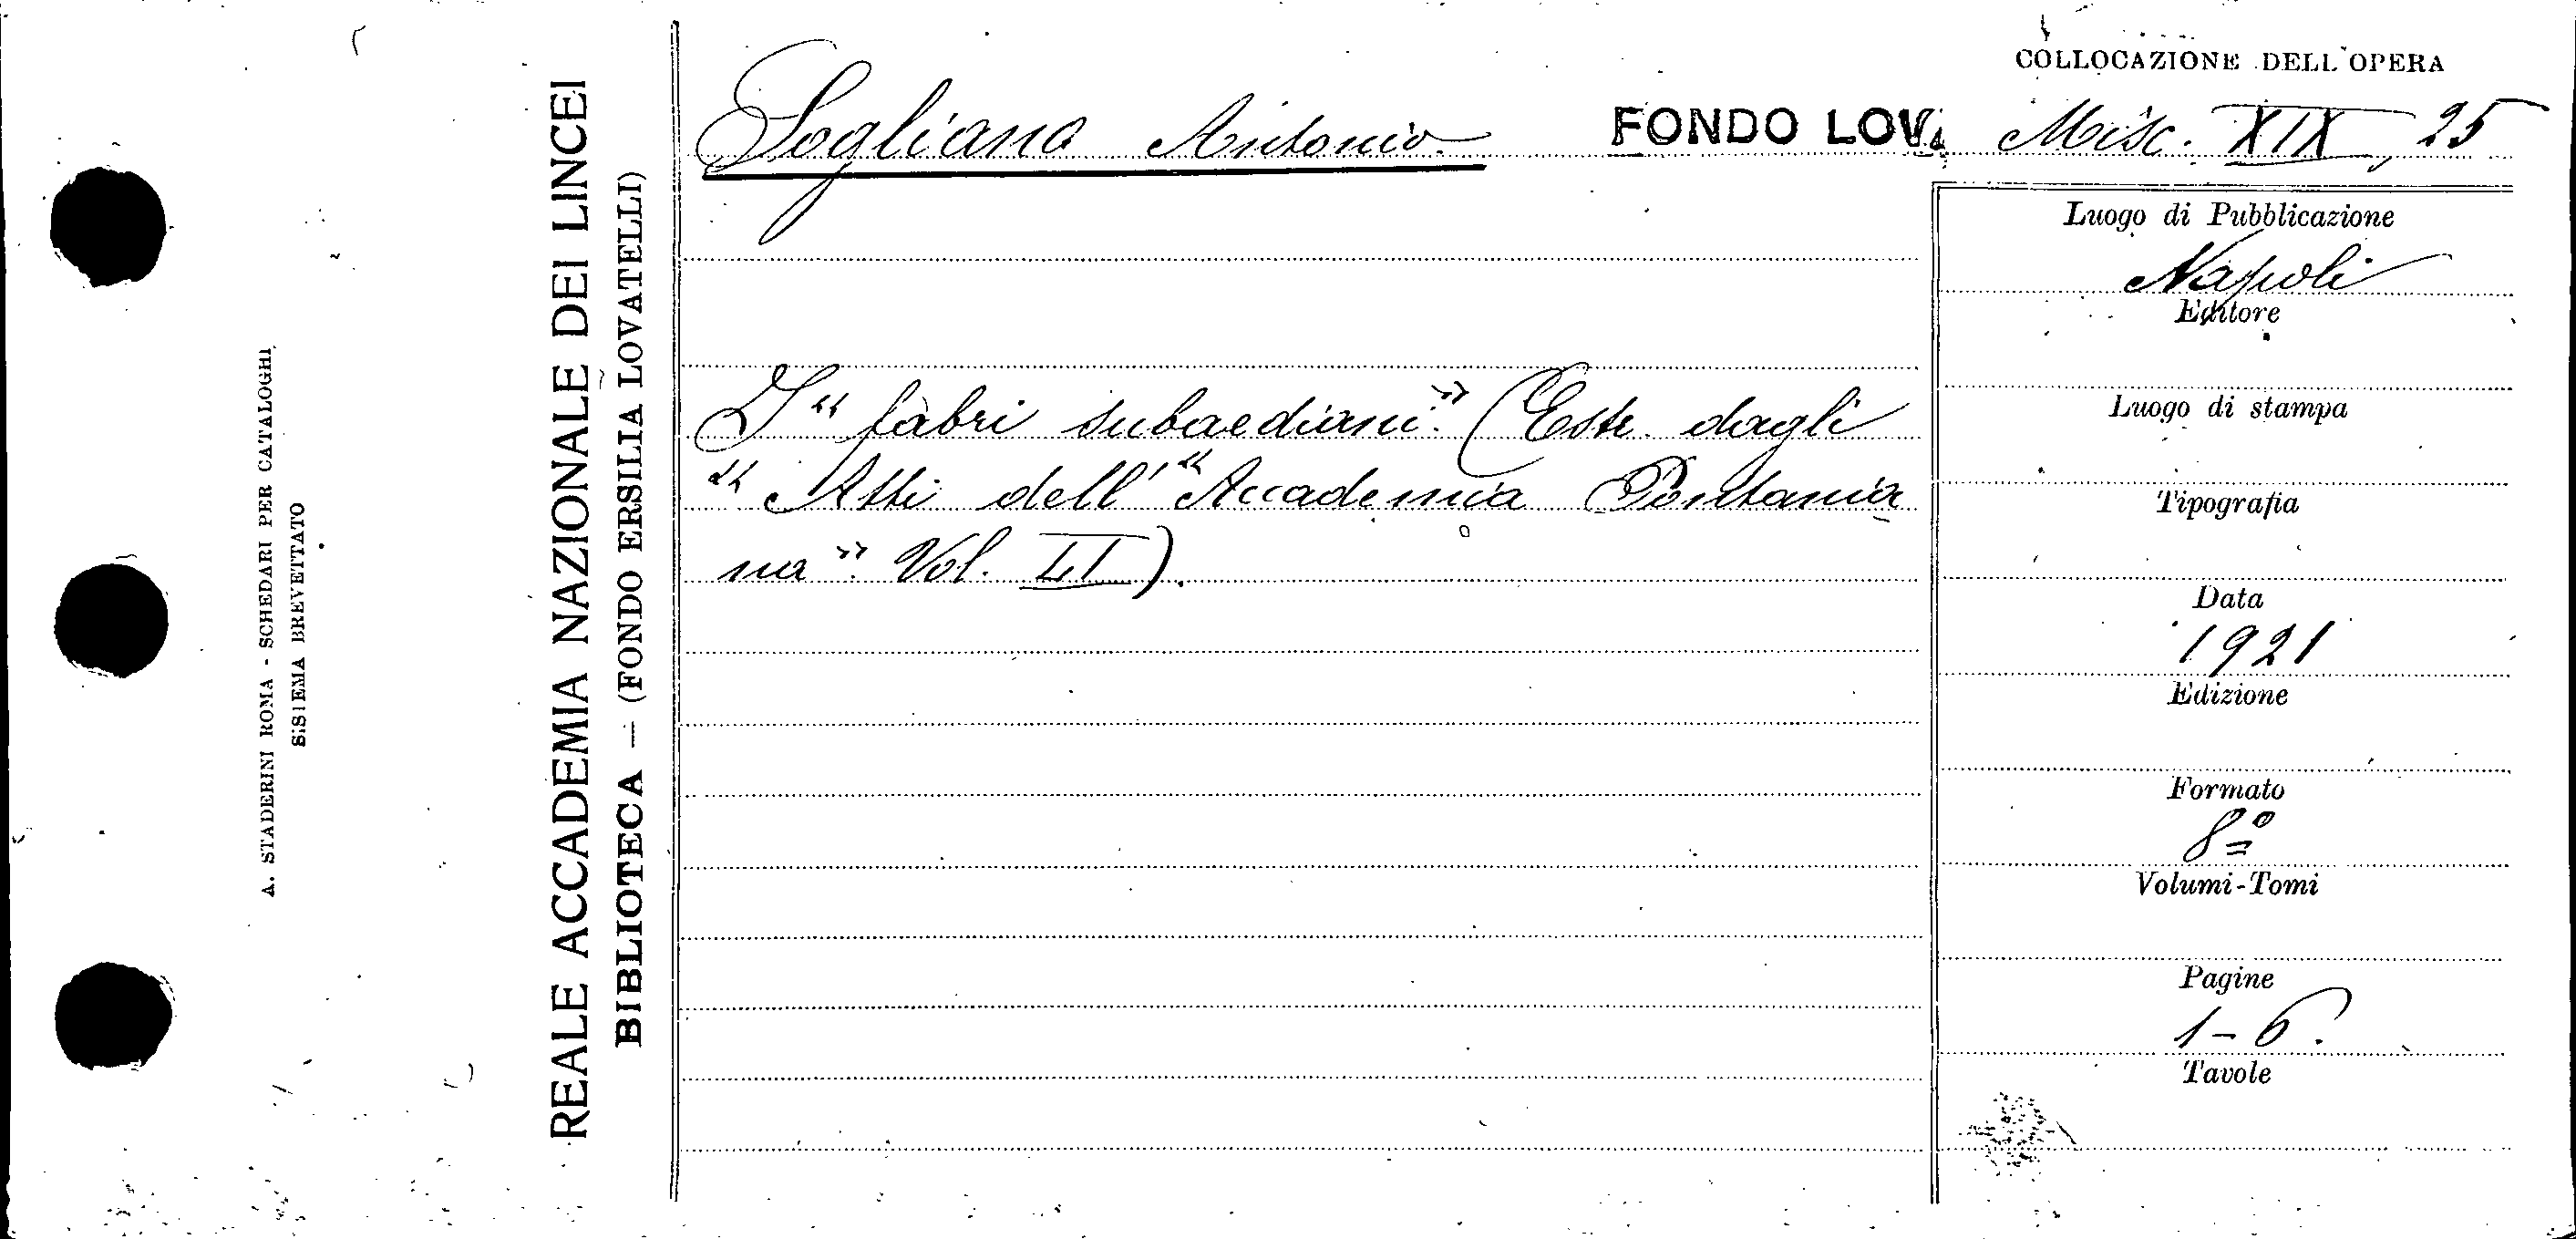 A. STADERINI ROMA - SCHEDARI PER CATALOGHI
SISTEMA BREVETTATO
REALE ACCADEMIA NAZIONALE DEI LINCEI
BIBLIOTECA — (FONDO ERSILIA LOVATELLI)
COLLOCAZIONE DELL'OPERA
Sogliano Antonio FONDO LOV. Misc. XIX, 25
I "fabri subaediani" (Estr. dagli
"Atti dell' "Accademia Pontania
na". Vol. LI).
Luogo di Pubblicazione
Napoli
Editore
Luogo di stampa
Tipografia
Data
1921
Edizione
Formato
8º
Volumi-Tomi
Pagine
1-6.
Tavole